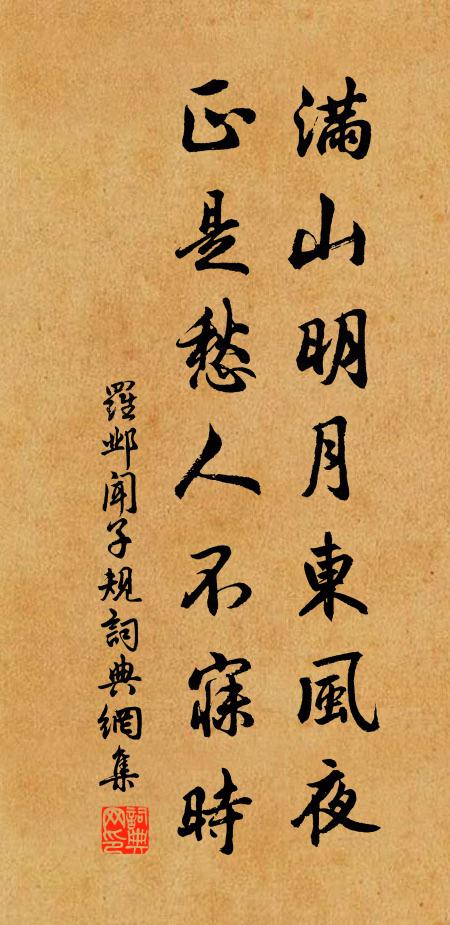 滿山明月東風夜
正是愁人不寐時
羅鄴聞子規詞典網集
詞典網印